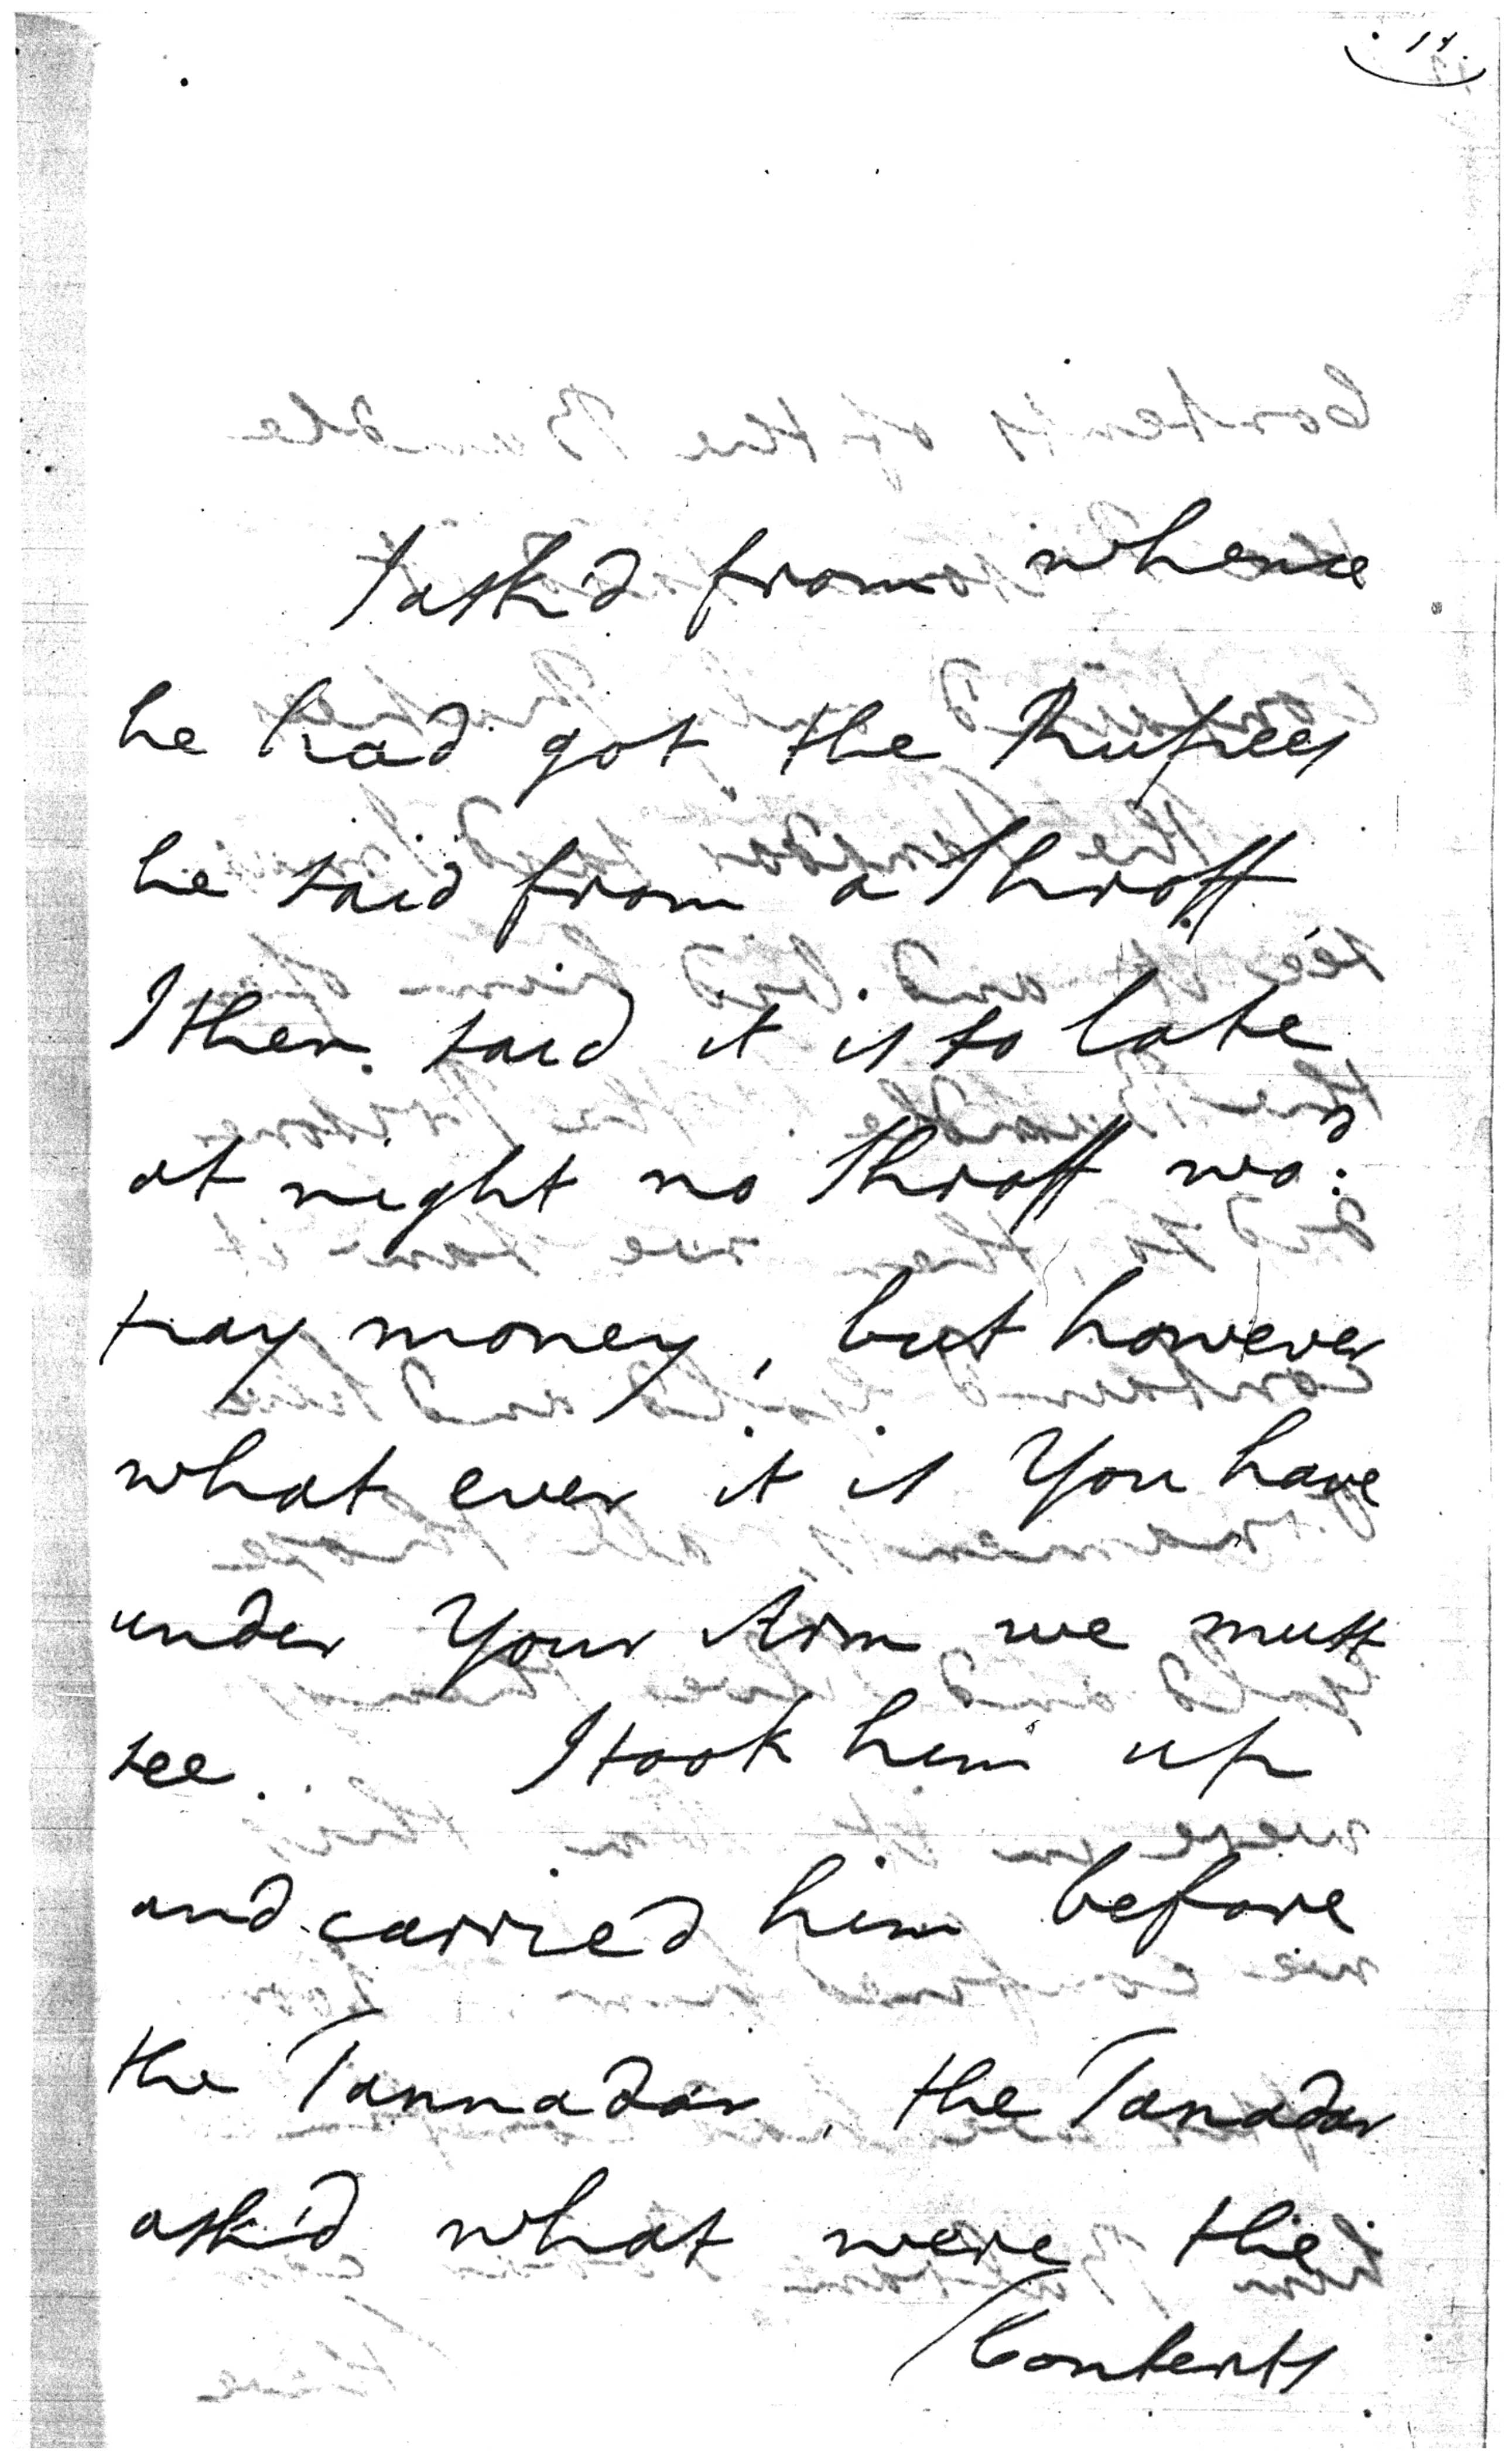 I ask'd from whence
he had got the Rupees
he said from a Shroff
I then said it is so late
at night no Shroff wo:d
pay money, but however
what ever it is You have
under Your Arm we must
see. I took him up
and carried him before
the Tannadar, the Tanadar
ask'd what were the
Contents